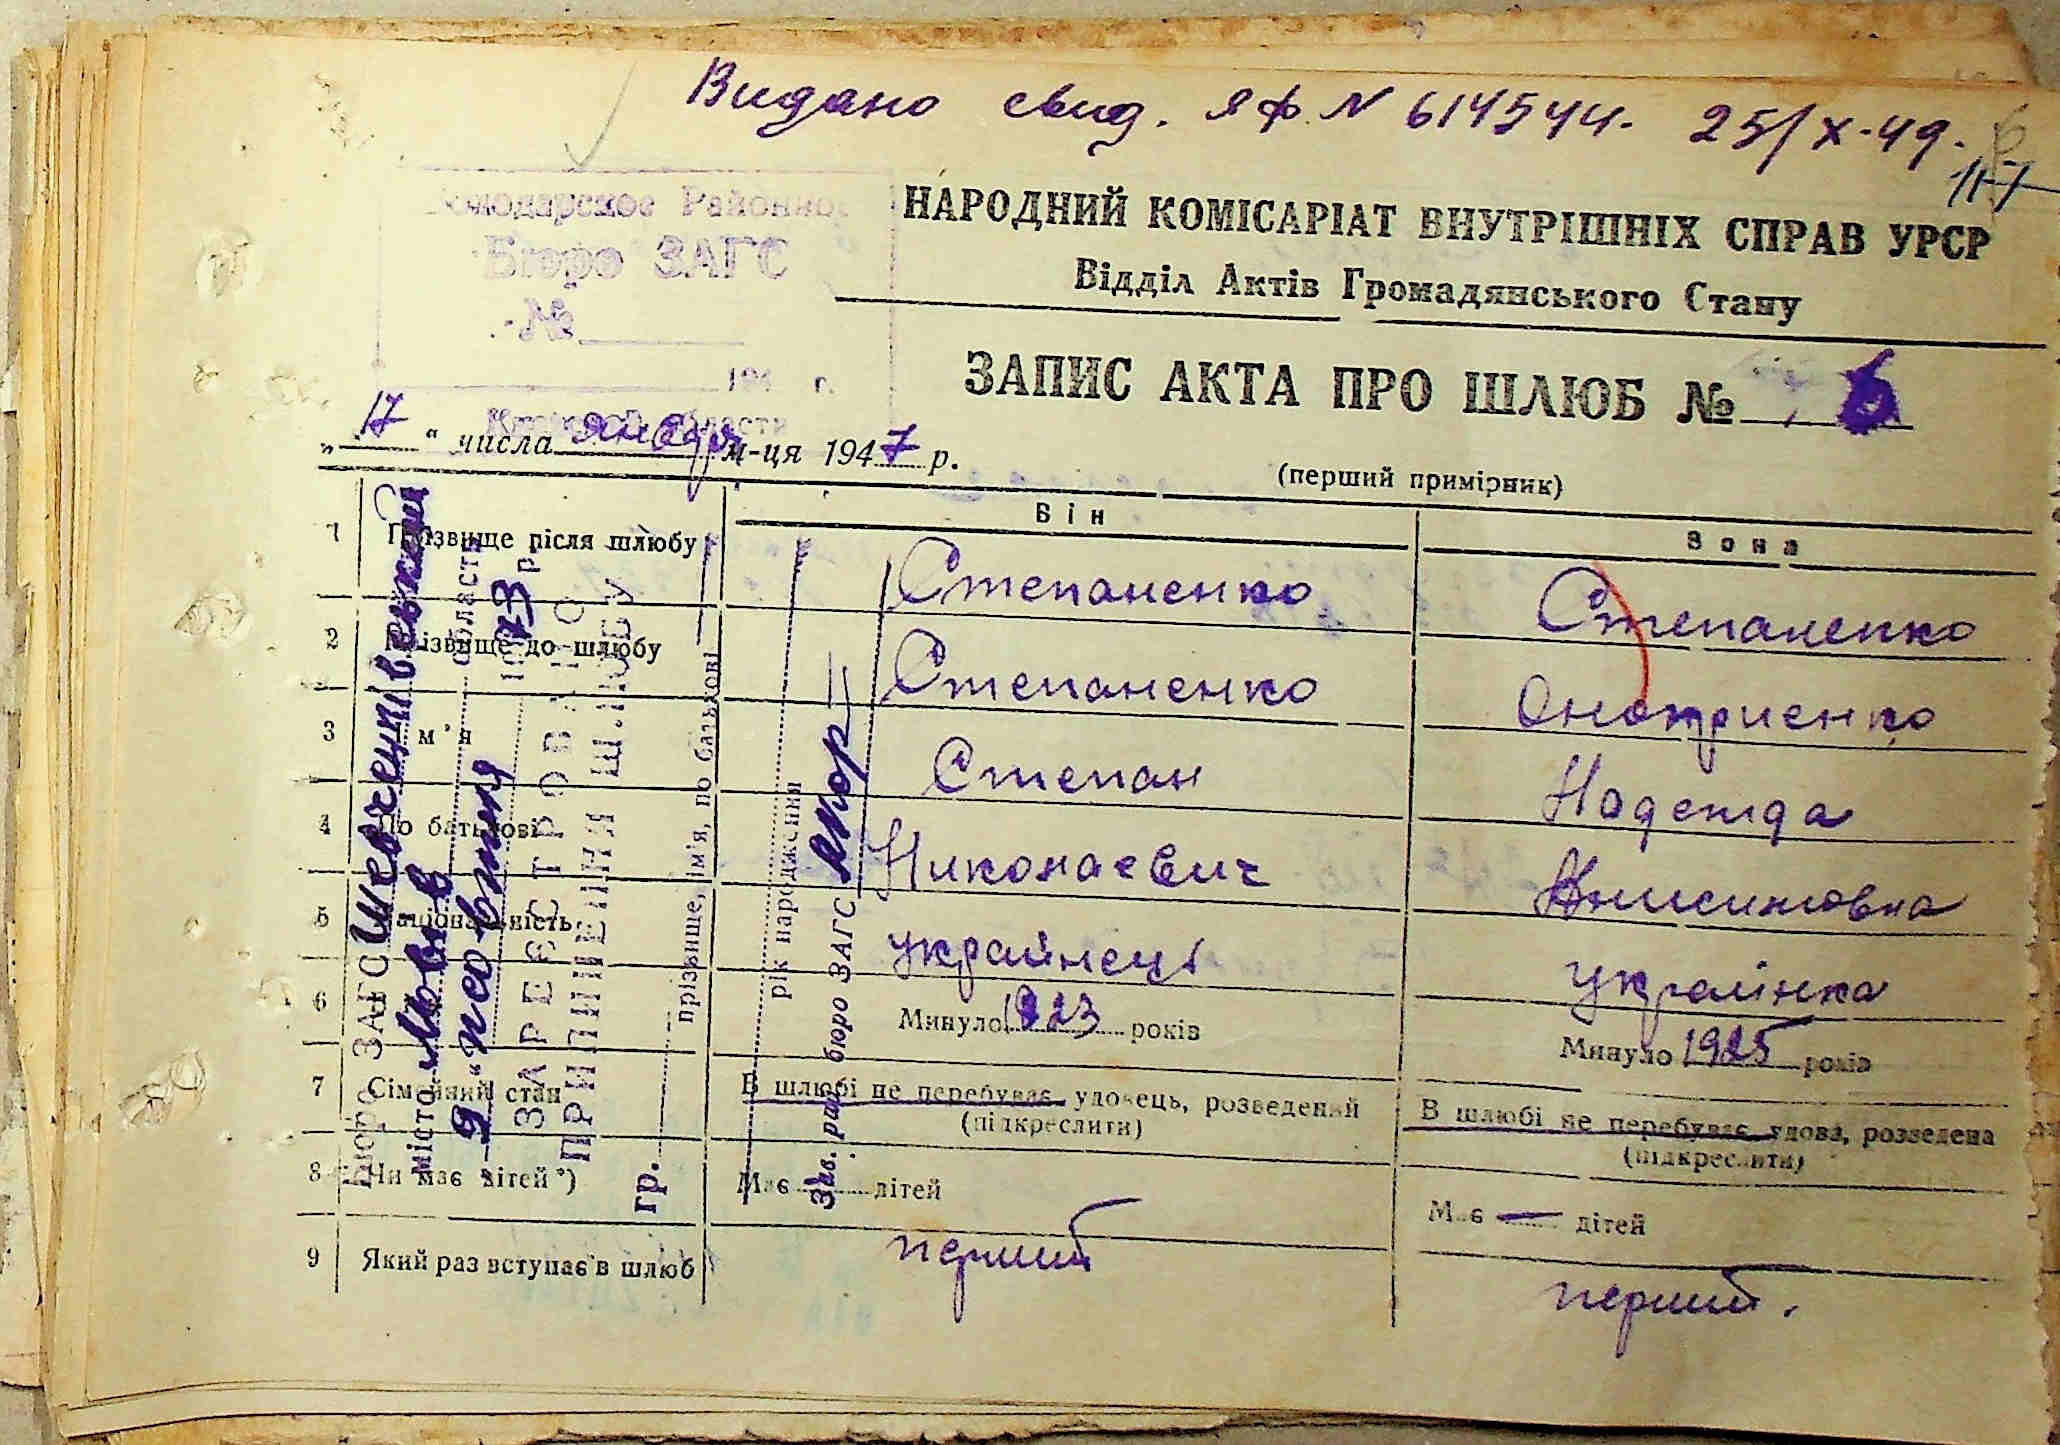 Видано свид. ЯФ N 614544. 25/X-49.
117
Районно
Бюро ЗАГС
№
194 г.
НАРОДНИЙ КОМІСАРІАТ ВНУТРІШНІХ СПРАВ УРСР
Відділ Актів Громадянського Стану
ЗАПИС АКТА ПРО ШЛЮБ № 6
„ 17 “ числа январ м-ця 1947 р.
(перший примірник)
Він Вона
1 Прізвище після шлюбу Степаненко Степаненко
2 Прізвище до шлюбу Степаненко Оноприенко
3 м'я Степан Надежда
4 По батькові Николаевич Анисимовна
5 аціональність українець українка
6 Минуло 1923 років Минуло 1925 років
7 Сімейний стан В шлюбі не перебуває, удовець, розведений (підкреслити) В шлюбі не перебуває, удова, розведена (підкреслити)
8 Чи має дітей*) Має дітей Має — дітей
9 Який раз вступає в шлюб перший перший.
Бюро ЗАГС Шевченківський
місто Львів область
„9“ жовтня р.
ЗАРЕЄСТРОВАНО
ПРИПИНЕННЯ ШЛЮБУ
гр.
прізвище, ім'я, по батькові
рік народження
Зав. рай. бюро ЗАГС